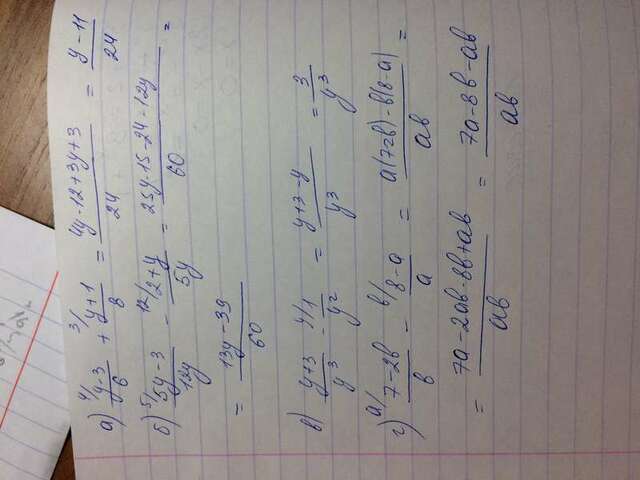 а) ⁴/(y-3)/6 + ³/(y+1)/8 = (4y-12+3y+3)/24 = (y-11)/24
б) ⁵/(5y-3)/12y - ¹²/(2+y)/5y = (25y-15-24-12y)/60 =
= (13y-39)/60
в) (y+3)/y³ - ʸ/1/y² = (y+3-y)/y³ = 3/y³
г) ᵃ/(7-2в)/в - ᵇ/(8-a)/a = (a(7-2в)-в(8-a))/aв =
= (7a-2aв-8в+aв)/aв = (7a-8в-aв)/aв